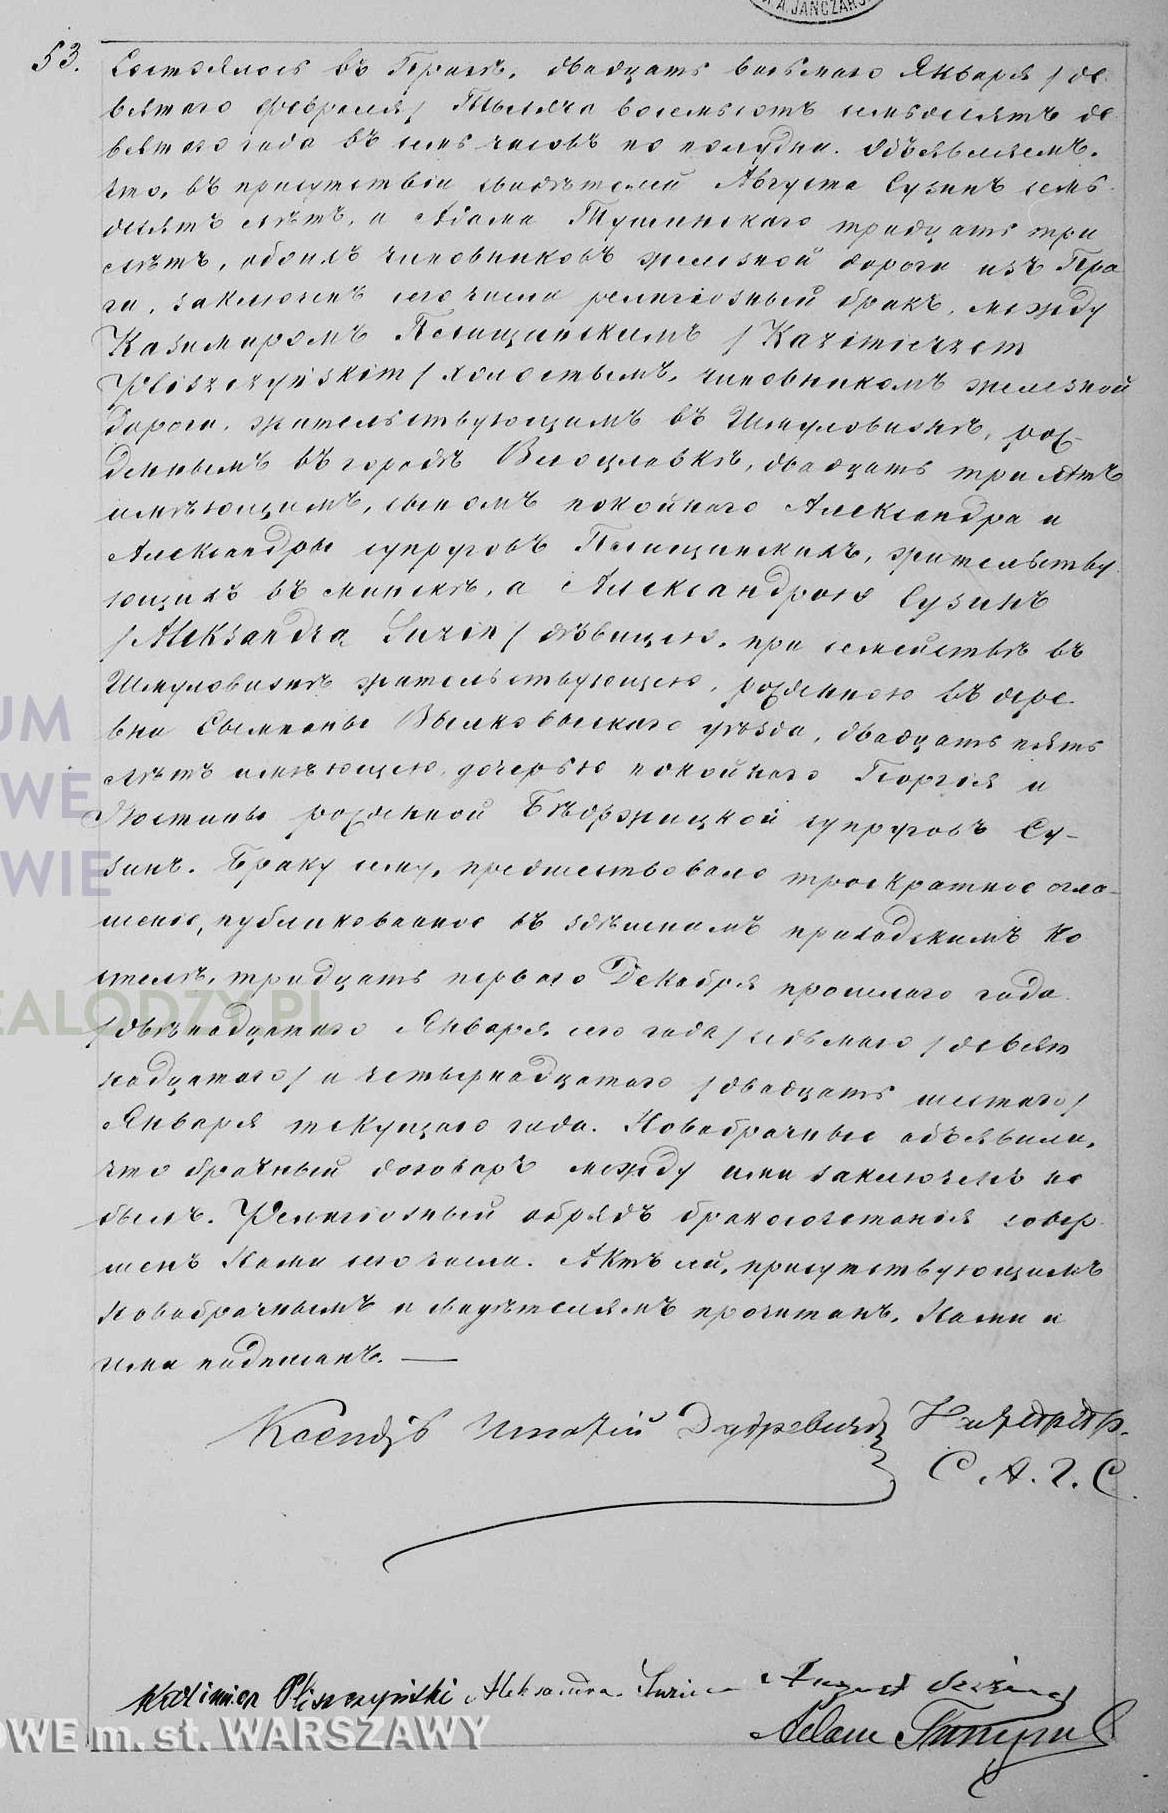 A. JANCZARS
53. Состоялось въ Прагѣ, двадцать восьмаго Января /де
вятаго Февраля/ Тысяча восемьсотъ семьдесятъ де
вятаго года въ семь часовъ по полудни. Объявляемъ,
что, въ присутствіи свидѣтелей Августа Сузинъ семь
десятъ лѣтъ, и Адама Тушинскаго тридцать три
лѣтъ, обоихъ чиновниковъ железной дороги изъ Пра
ги, заключенъ сего числа религіозный бракъ, между
Казимиромъ Плищинскимъ /Kazimierzem
Pliszczyńskim/ холостымъ, чиновникомъ железной
дороги, жительствующимъ въ Шмуловизнѣ, рож
деннымъ въ городѣ Влоцлавкѣ, двадцать три лѣтъ
имѣющимъ, сыномъ покойнаго Александра и
Александры супруговъ Плищинскихъ, жительству
ющихъ въ Минскѣ, а Александрою Сузинъ
/Aleksandrą Suzin/ дѣвицею, при семействѣ въ
Шмуловизнѣ жительствующею, рожденною въ дере
вни Вылковыскаго уѣзда, двадцать пять
лѣтъ имѣющею, дочерью покойнаго Георгія и
Юстины рожденной супруговъ Су-
зинъ. Браку сему, предшествовало троекратное огла-
шеніе, публикованное въ здѣшнемъ приходскимъ ко
стелѣ, тридцать перваго Декабря прошлаго года
/двѣнадцатаго Января сего года/ седьмаго /девят
надцатаго/ и четырнадцатаго /двадцать шестаго/
Января текущаго года. Новобрачные объявили,
что брачный договоръ между ими заключенъ не
былъ. Религіозный обрядъ бракосочетанія совер
шенъ Нами сего числа. Актъ сей, присутствующимъ
Новобрачнымъ и свидѣтелямъ прочитанъ, Нами и
ими подписанъ. —
Ксендзъ
С. А. Г. С.
Kazimierz Pliszczyński Aleksandra Suzin August Suzin
Adam
UM
WE
WIE
EALODZY.PL
OWE m. st. WARSZAWY